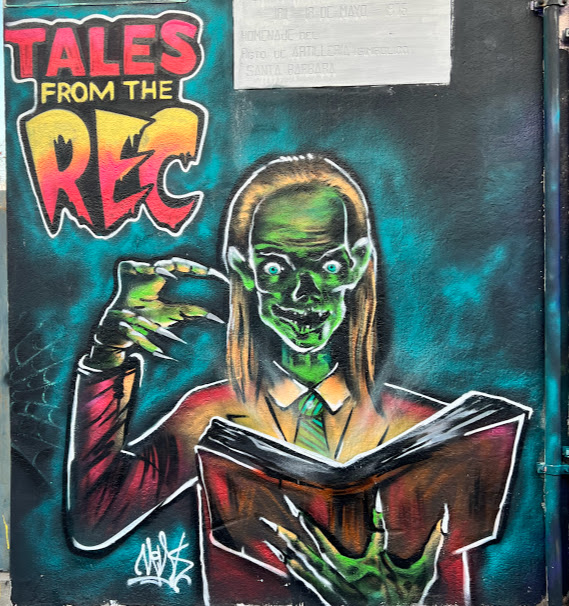 TALES
FROM THE
REC
DE MAYO
HOMENAJE DEL
RGTO. DE ARTILLERIA
SANTA BARBARA